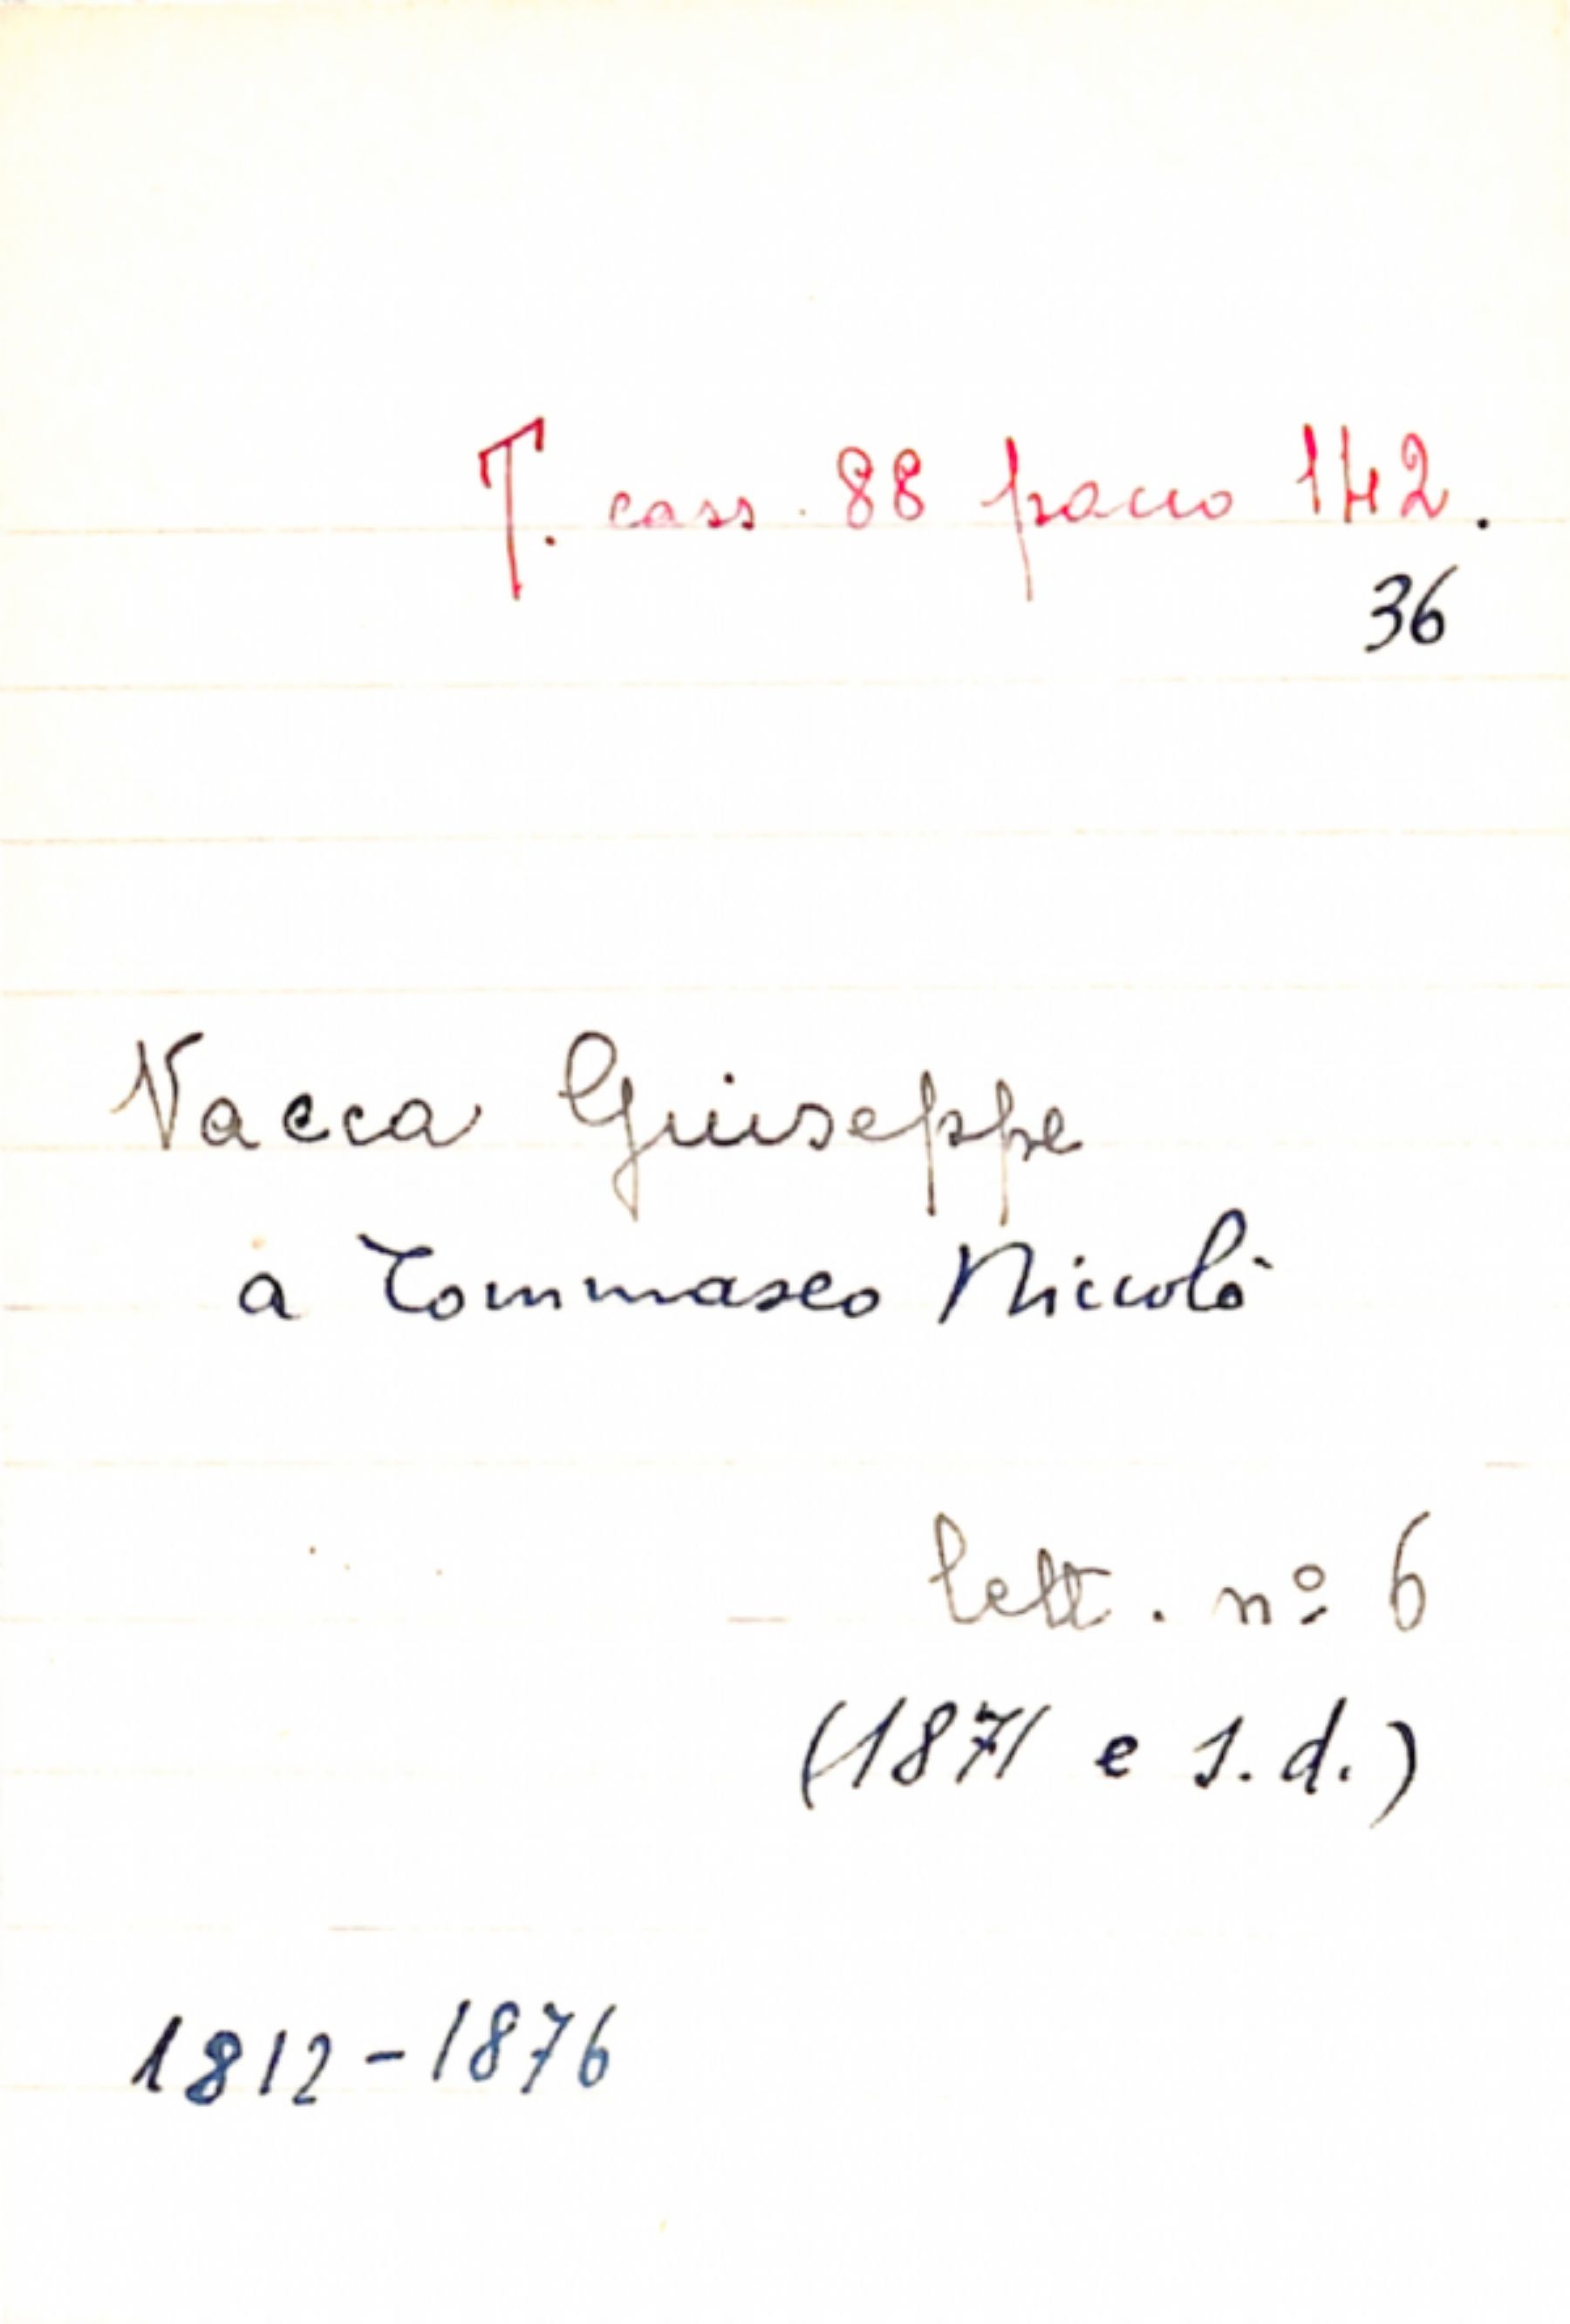 T. cass. 88 pacco 142.
36
Vacca Giuseppe
a Tommaseo Niccolò
lett. nº 6
(1871 e s.d.)
1812-1876